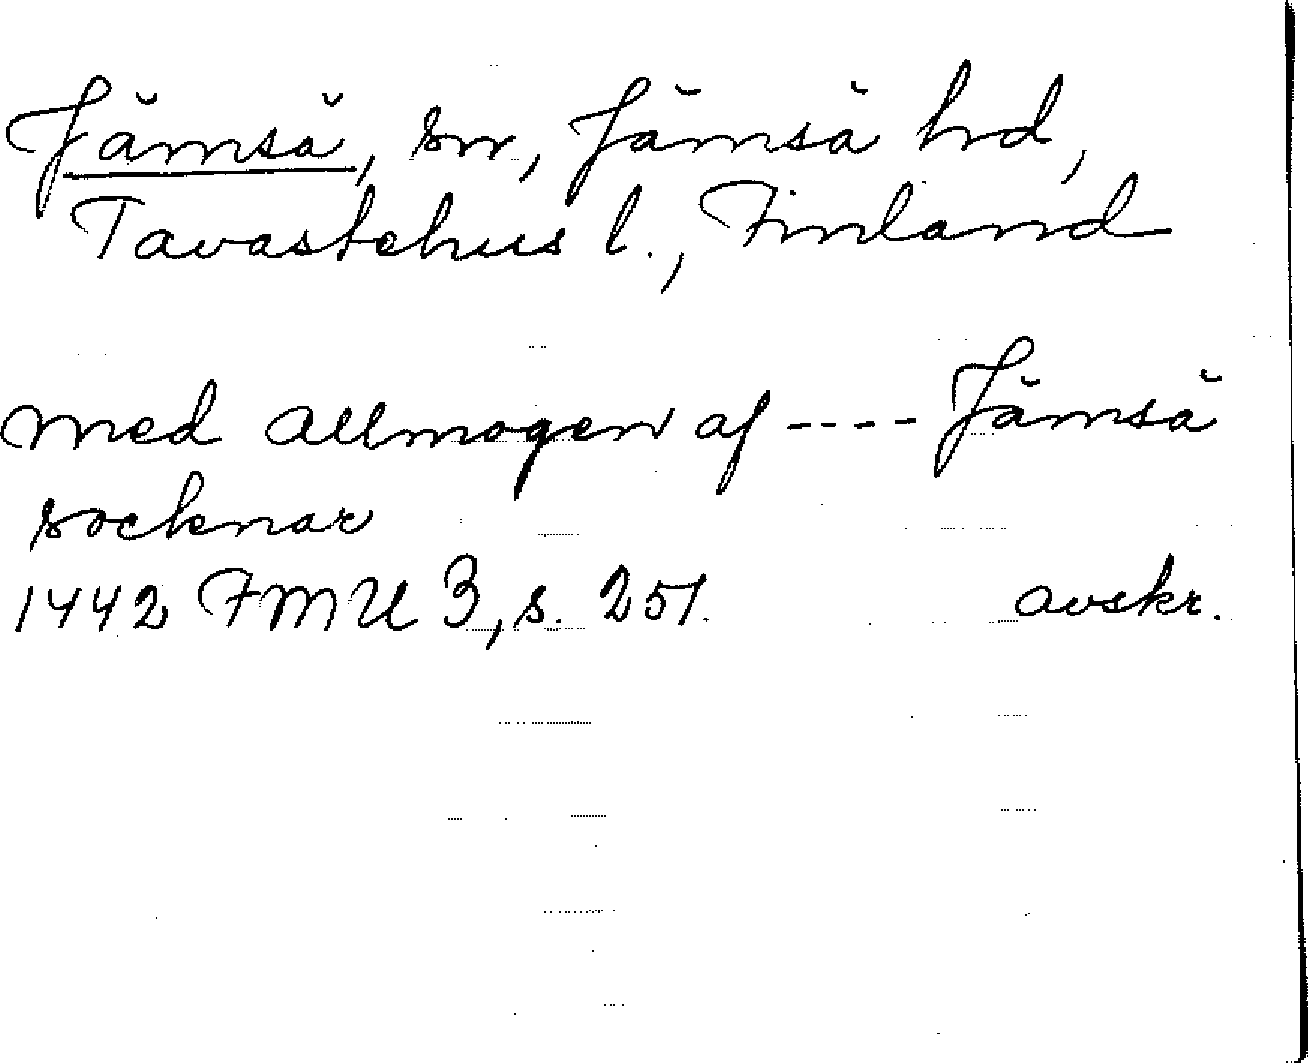 Jämsä, sn, Jämsä hd,
Tavastehus l., Finland
med allmogen af ---- Jämsä
socknar
1442 FMU 3, s. 251.
avskr.